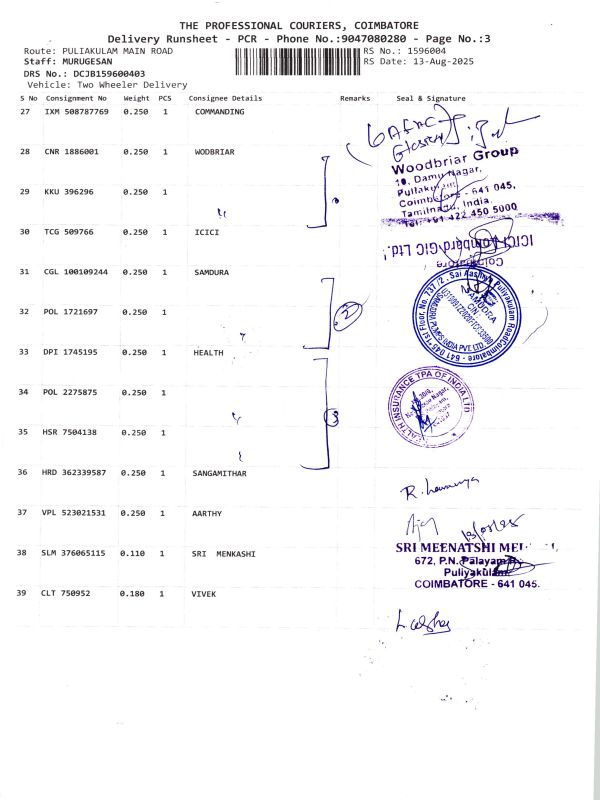 THE PROFESSIONAL COURIERS, COIMBATORE
Delivery Runsheet - PCR - Phone No.:9047080280 - Page No.:3
Route: PULIAKULAM MAIN ROAD RS No.: 1596004
Staff: MURUGESAN RS Date: 13-Aug-2025
DRS No.: DCJB159600403
Vehicle: Two Wheeler Delivery
S No Consignment No Weight PCS Consignee Details Remarks Seal & Signature
27 IXM 508787769 0.250 1 COMMANDING
28 CNR 1886001 0.250 1 WODBRIAR
Woodbriar Group
10, Damu Nagar,
29 KKU 396296 0.250 1
Coimbatore - 641 045,
Tamilnadu, India.
Tel: +91 422 450 5000
30 TCG 509766 0.250 1 ICICI
ICICI Lombard GIC Ltd.
Coimbatore
31 CGL 100109244 0.250 1 SAMDURA
32 POL 1721697 0.250 1
2
33 DPI 1745195 0.250 1 HEALTH
HEALTH INSURANCE TPA OF INDIA LTD
34 POL 2275875 0.250 1
3
35 HSR 7504138 0.250 1
36 HRD 362339587 0.250 1 SANGAMITHAR
37 VPL 523021531 0.250 1 AARTHY
38 SLM 376065115 0.110 1 SRI MENKASHI
SRI MEENATSHI
672, P.N. Palayam
Puliyakulam
COIMBATORE - 641 045.
39 CLT 750952 0.180 1 VIVEK